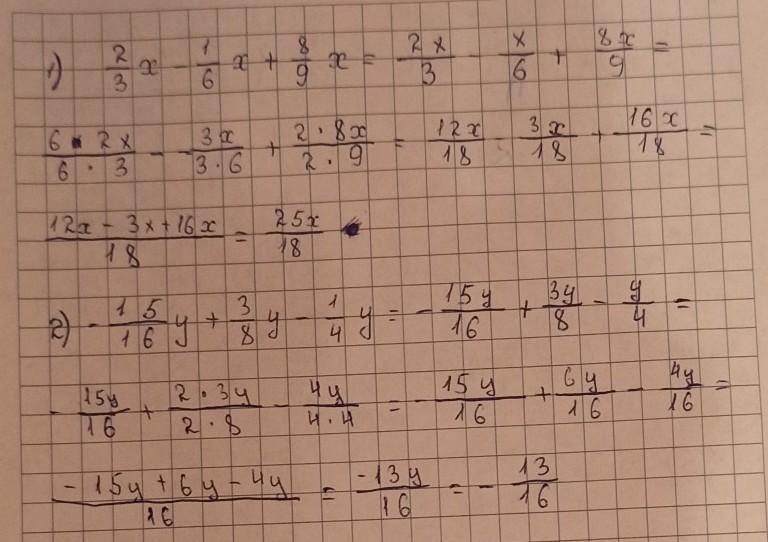 1) 2/3 x - 1/6 x + 8/9 x = 2x/3 - x/6 + 8x/9 =
6·2x/6·3 - 3x/3·6 + 2·8x/2·9 = 12x/18 - 3x/18 + 16x/18 =
12x - 3x + 16x/18 = 25x/18
2) - 15/16 y + 3/8 y - 1/4 y = - 15y/16 + 3y/8 - y/4 =
- 15y/16 + 2·3y/2·8 - 4y/4·4 = - 15y/16 + 6y/16 - 4y/16 =
- 15y + 6y - 4y/16 = -13y/16 = - 13/16